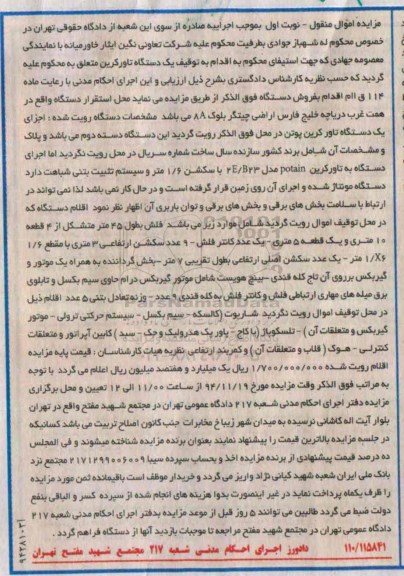 مزایده اموال منقول - نوبت اول بموجب اجراییه صادره از سوی این شعبه از دادگاه حقوقی تهران در
خصوص محکوم له شهباز جوادی بطرفیت محکوم علیه شرکت تعاونی نگین ایثار خاورمیانه با نمایندگی
معصومه جهادی که جهت استیفای محکوم به اقدام به توقیف یک دستگاه تاورکرین متعلق به محکوم علیه
گردید که حسب نظریه کارشناس دادگستری بشرح ذیل ارزیابی و این اجرای احکام مدنی با رعایت ماده
۱۱۴ ق اام اقدام بفروش دستگاه فوق الذکر از طریق مزایده می نماید محل استقرار دستگاه واقع در
همت غرب دریاچه خلیج فارس اراضی چیتگر بلوک ۸۸ می باشد مشخصات دستگاه رویت شده : اجزای
یک دستگاه تاور کرین پوتن در محل فوق الذکر رویت گردید این دستگاه دسته دوم می باشد و پلاک
و مشخصات آن شامل برند کشور سازنده سال ساخت شماره سریال در محل رویت نگردید اما اجزای
دستگاه به تاورکرین potain مدل ۲E/B۲۳ با سکشن ۱/۶ متر و سیستم تثبیت بتنی شباهت دارد
دستگاه مونتاژ شده و اجزای آن روی زمین قرار گرفته است و در حال کار نمی باشد لذا نمی تواند در
ارتباط با سلامت بخش های برقی و بخش های برقی و توان باربری آن اظهار نظر نمود اقلام دستگاه که
در محل توقیف اموال رویت گردید شامل موارد زیر می باشد فلش بطول ۴۵ متر متشکل از ۴ قطعه
۱۰ متری و یک قطعه ۵ متری - یک عدد کانتر فلش - ۹ عدد سکشن ارتفاعی ۳ متری با مقطع ۱/۶
۱/۶X متر - یک عدد سکشن اصلی ارتفاعی بطول تقریبی ۷ متر - بخش گرداننده به همراه یک موتور و
گیربکس برروی آن تاج کله قندی - بینچ هویست شامل موتور گیربکس درام حاوی سیم بکسل و تابلوی
برق میله های مهاری ارتباطی فلش و کانتر فلش به کله قندی ۹ عدد - وزنه تعادل بتنی ۵ عدد اقلام ذیل
در محل توقیف اموال رویت نگردید شاریوت (کالسکه - سیم بکسل - سیستم حرکتی ترولی - موتور
گیربکس و متعلقات آن) - تلسکوپاژ (با کاج - پاور پک هیدرولیک و جک - سبد) کابین آپراتور و متعلقات
کنترلی - هوک (قلاب و متعلقات آن) و کمربند ارتفاعی نظریه هیات کارشناسان : قیمت پایه مزایده
اقلام رویت شده ۱/۷۰۰/۰۰۰/۰۰۰ ریال یک میلیارد و هفتصد میلیون ریال اعلام می گردد با توجه
به مراتب فوق الذکر وقت مزایده مورخ ۹۴/۱۱/۱۹ از ساعت ۱۱/۰۰ الی ۱۲ تعیین و محل برگزاری
مزایده دفتر اجرای احکام مدنی شعبه ۲۱۷ دادگاه عمومی تهران در مجتمع شهید مفتح واقع در تهران
بلوار آیت اله کاشانی نرسیده به میدان شهر زیبا خ مخابرات جنب کانون اصلاح تربیت می باشد کسانیکه
در جلسه مزایده بالاترین قیمت را پیشنهاد نمایند بعنوان برنده مزایده شناخته میشوند و فی المجلس
ده درصد قیمت پیشنهادی از برنده مزایده اخذ و بحساب سپرده سیبا ۲۱۷۱۲۹۹۰۰۶۰۰۹ مجتمع نزد
بانک ملی ایران شعبه شهید کیانی نژاد واریز می گردد و خریدار موظف است باقیمانده ثمن مورد مزایده
را ظرف یکماه پرداخت نماید در غیر اینصورت بدوا هزینه های انجام شده از سپرده کسر و الباقی بنفع
دولت ضبط می گردد طالبین می توانند ۵ روز قبل از موعد مزایده بدفتر اجرای احکام مدنی شعبه ۲۱۷
دادگاه عمومی تهران در مجتمع شهید مفتح مراجعه تا موجبات بازدید آنها از دستگاه فراهم گردد .
۱۱۰/۱۱۵۸۴۱ دادورز اجرای احکام مدنی شعبه ۲۱۷ مجتمع شهید مفتح تهران